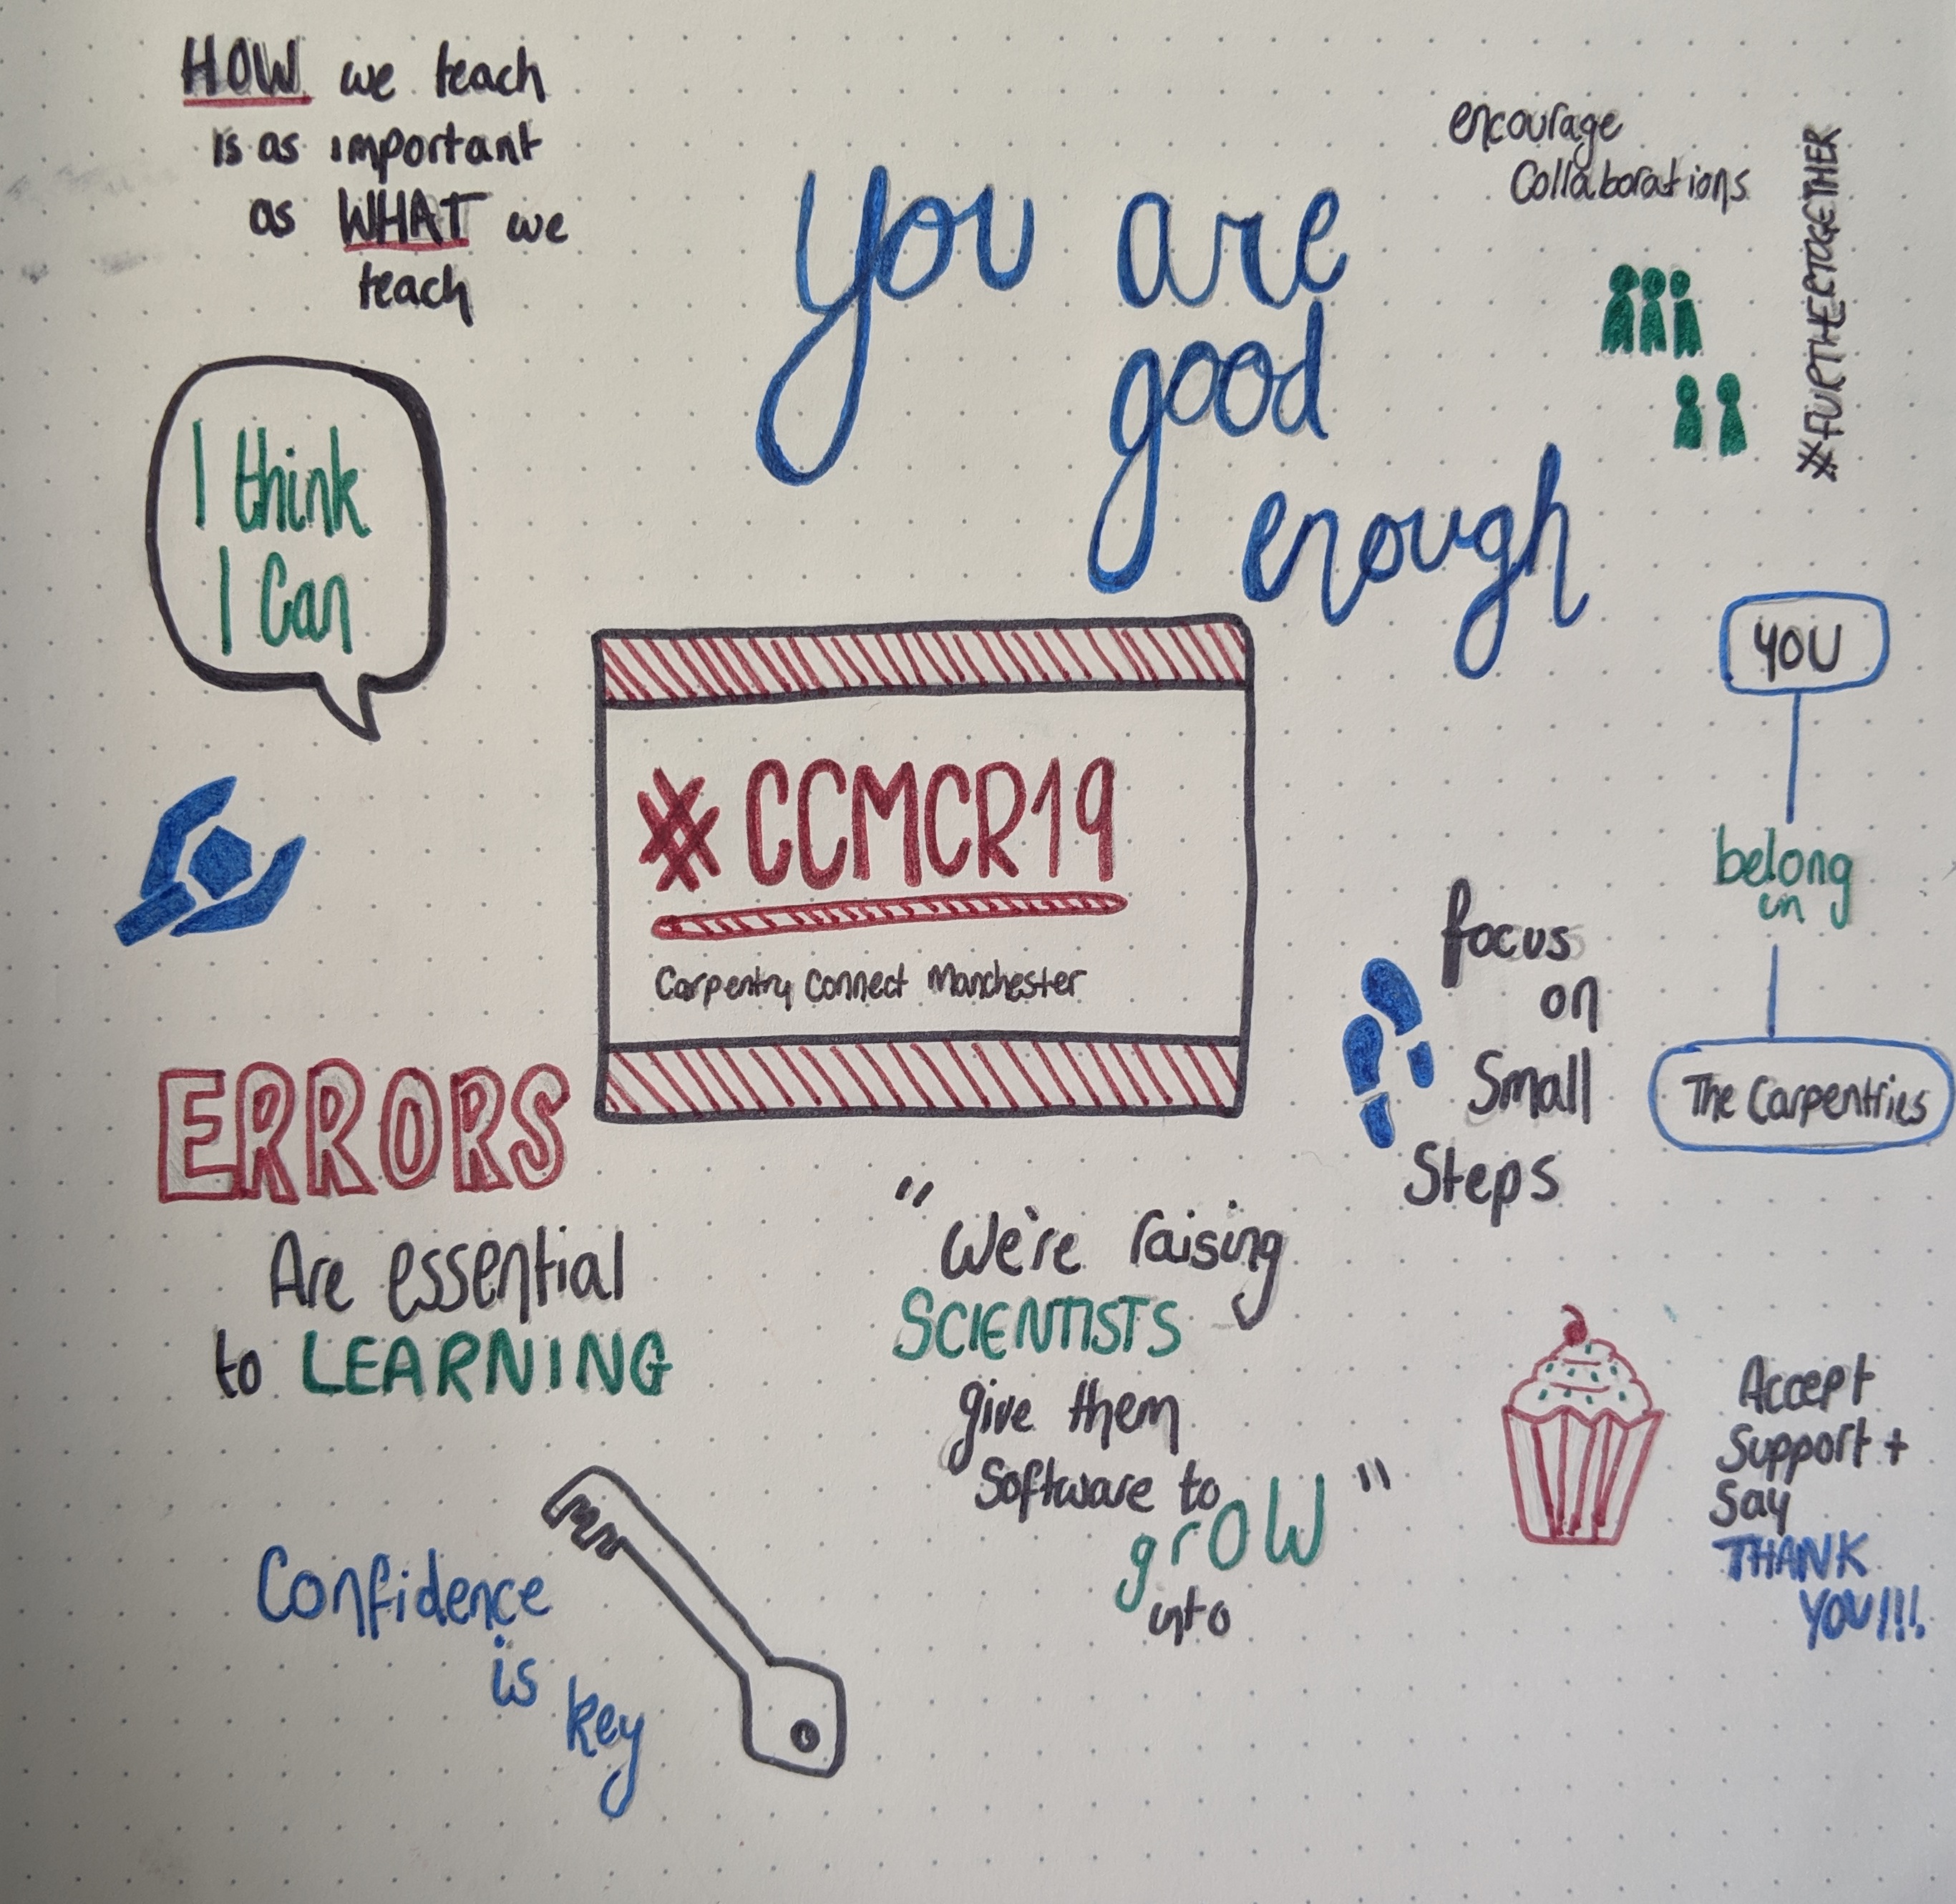 HOW we teach
is as important
as WHAT we
teach
you are
good
enough
encourage
Collaborations
#FURTHERTOGETHER
I think
I Can
#CCMCR19
Carpentry Connect Manchester
YOU
belong
in
The Carpentries
focus
on
Small
Steps
ERRORS
Are essential
to LEARNING
"We're raising
SCIENTISTS
give them
Software to
grOW"
into
Confidence
is
key
Accept
Support +
Say
THANK
YOU!!!